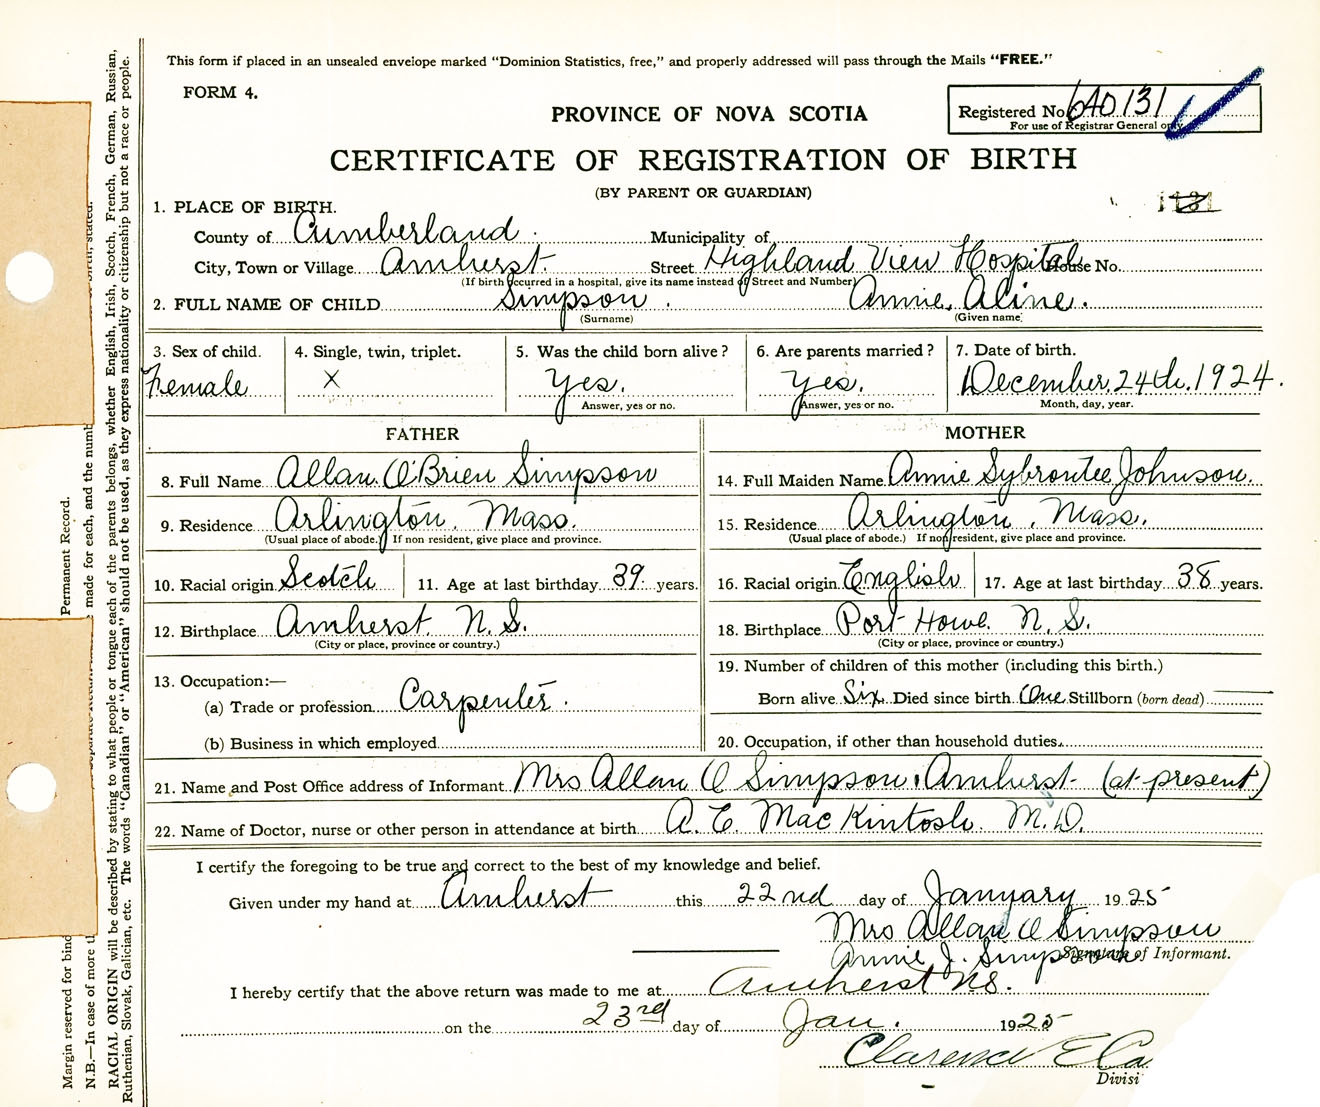 This form if placed in an unsealed envelope marked “Dominion Statistics, free,” and properly addressed will pass through the Mails “FREE.”
FORM 4.
PROVINCE OF NOVA SCOTIA
Registered No. 640131
For use of Registrar General only
CERTIFICATE OF REGISTRATION OF BIRTH
(BY PARENT OR GUARDIAN)
1. PLACE OF BIRTH.
County of Cumberland. Municipality of
City, Town or Village Amherst. Street Highland View Hospital House No.
(If birth occurred in a hospital, give its name instead of Street and Number)
2. FULL NAME OF CHILD Simpson. Annie Aline.
(Surname) (Given name)
3. Sex of child. 4. Single, twin, triplet. 5. Was the child born alive? 6. Are parents married? 7. Date of birth.
Female X Yes. Yes. December 24th. 1924.
Answer, yes or no. Answer, yes or no. Month, day, year.
FATHER MOTHER
8. Full Name Allan O'Brien Simpson 14. Full Maiden Name Annie Sybrontee Johnson.
9. Residence Arlington. Mass. 15. Residence Arlington, Mass.
(Usual place of abode.) If non resident, give place and province. (Usual place of abode.) If non resident, give place and province.
10. Racial origin Scotch 11. Age at last birthday 39 years. 16. Racial origin English 17. Age at last birthday 38 years.
12. Birthplace Amherst. N.S. 18. Birthplace Port Howe. N.S.
(City or place, province or country.) (City or place, province or country.)
13. Occupation:— 19. Number of children of this mother (including this birth.)
(a) Trade or profession Carpenter. Born alive Six Died since birth One Stillborn (born dead)
(b) Business in which employed 20. Occupation, if other than household duties.
21. Name and Post Office address of Informant Mrs Allan O Simpson. Amherst (at present)
22. Name of Doctor, nurse or other person in attendance at birth A. E. MacKintosh. M.D.
I certify the foregoing to be true and correct to the best of my knowledge and belief.
Given under my hand at Amherst this 22nd day of January 1925
Mrs Allan O Simpson
Annie J. Simpson Signature of Informant.
I hereby certify that the above return was made to me at Amherst NS.
on the 23rd day of Jan. 1925
Clarence E Ca
Divisi
Margin reserved for bind
Permanent Record.
N.B.—In case of more t
made for each, and the numb
stated.
RACIAL ORIGIN will be described by stating to what people or tongue each of the parents belongs, whether English, Irish, Scotch, French, German, Russian,
Ruthenian, Slovak, Galician, etc. The words “Canadian” or “American” should not be used, as they express nationality or citizenship but not a race or people.